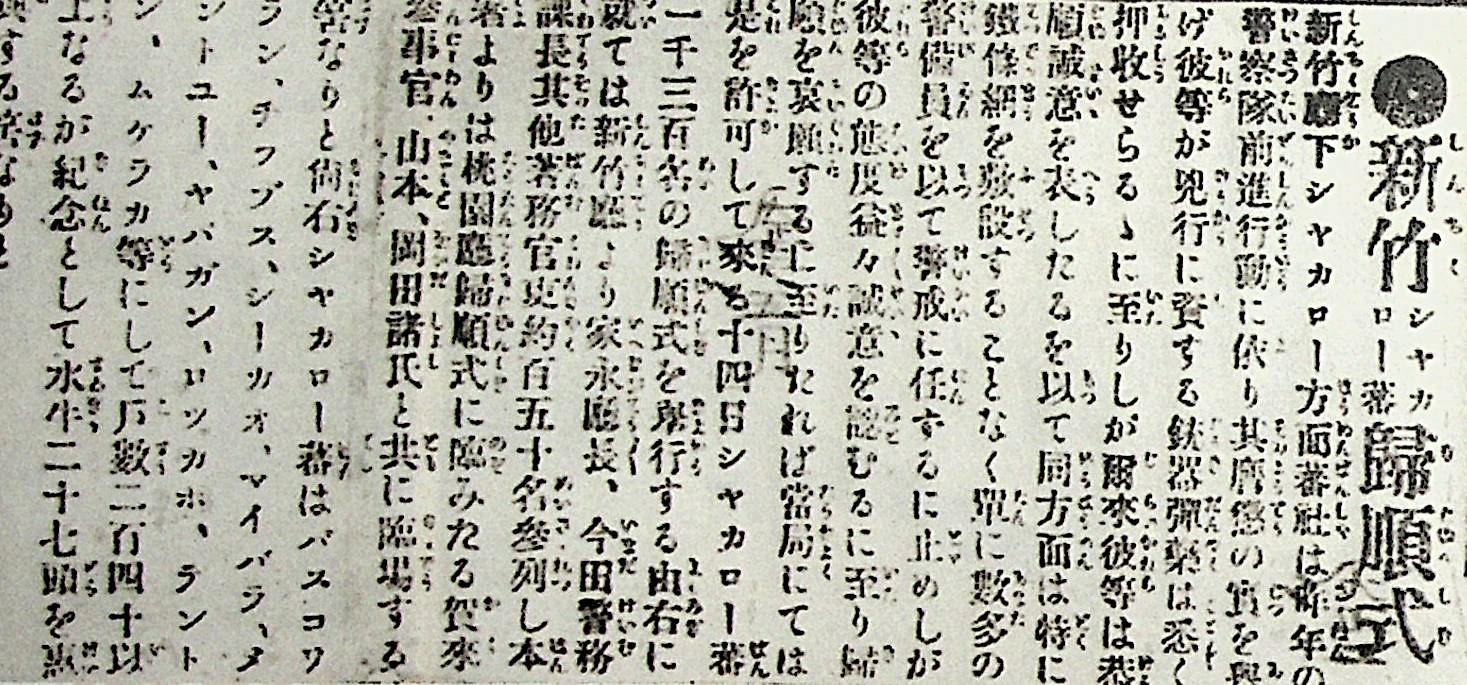 ●新竹シヤカロー蕃歸順式
新竹廳下シヤカロー方面蕃社は昨年の
警察隊前進行動に依り其膺懲の實を與
げ彼等が兇行に資する銃器彈藥は悉く
押收せらるゝに至りしが爾來彼等は恭
順誠意を表したるを以て同方面は特に
鐵條網を敷設することなく單に數多の
警備員を以て警戒に任ずるに止めしが
彼等の態度益々誠意を認むるに至り歸
順を哀願するに至りたれば當局にては
是を許可して來る十四日シヤカロー蕃
一千三百名の歸順式を舉行する由右に
就ては新竹廳より家永廳長、今田警務
課長其他著務官吏約百五十名參列し本
署よりは桃園廳歸順式に臨みたる賀來
參事官、山本、岡田諸氏と共に臨場する
筈なりと尙右シヤカロー蕃はバスコワ
ラン、チツブス、シーカオ、マイバラ、タ
ントユー、ヤバガン、ロツカホ、ラント
ン、ムケラカ等にして戸數二百四十以
上なるが紀念として水牛二十七頭を惠
與する筈なりと